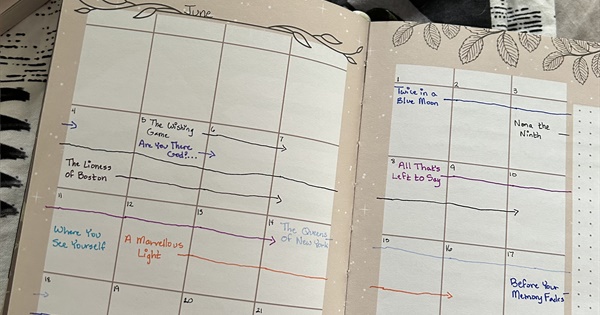 June
4
5 The Wishing
Game
Are You There
God?...
6
7
The Lioness
of Boston
11
12
13
14 The Queens
of New York
Where You
See Yourself
A Marvellous
Light
18
19
20
21
1
2
3
Twice in a
Blue Moon
Nona the
Ninth
8 All That's
Left to Say
9
10
15
16
17
Before Your
Memory Fades